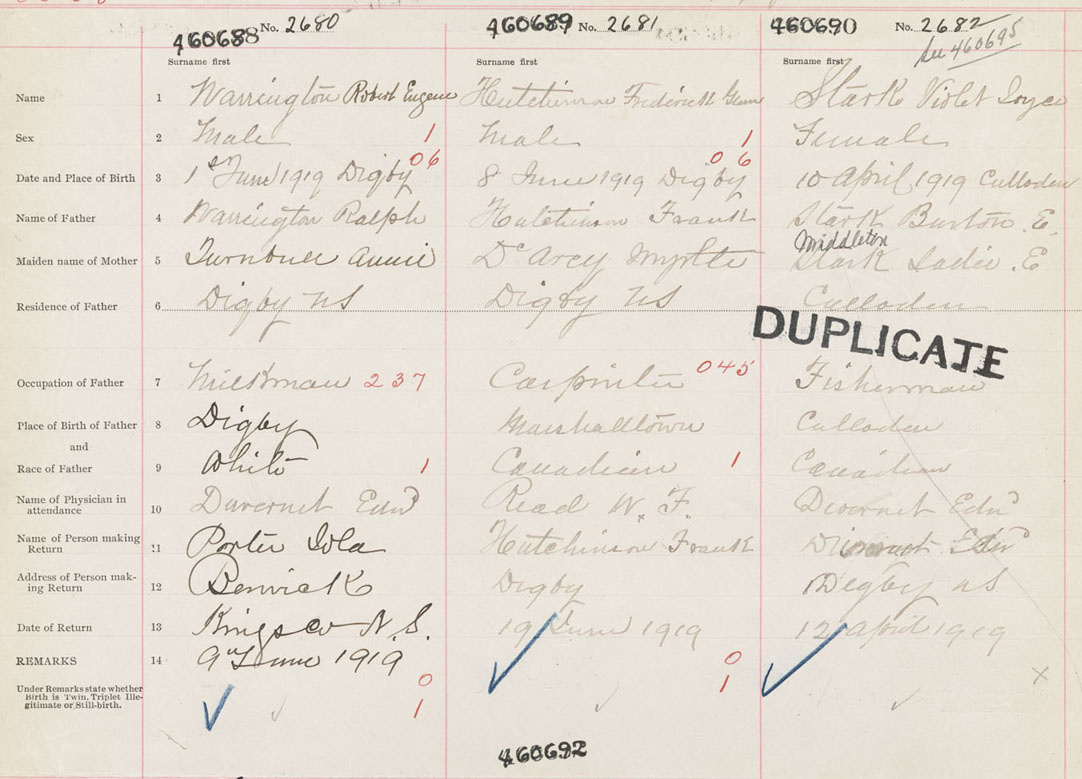 460688 No. 2680 460689 No. 2681 460690 No. 2682
See 460695
Surname first Surname first Surname first
Name 1 Warrington Robert Eugene Hutchinson Frederick Glenn Stark Violet Joyce
Sex 2 Male 1 Male 1 Female
06 06
Date and Place of Birth 3 1st June 1919 Digby 8 June 1919 Digby 10 April 1919 Culloden
Name of Father 4 Warrington Ralph Hutchinson Frank Stark Burton E.
Middleton
Maiden name of Mother 5 Turnbull Annie D'Arcy Myrtle Stark Sadie .E
Residence of Father 6 Digby NS Digby NS Culloden
DUPLICATE
Occupation of Father 7 Milkman 237 Carpenter 045 Fisherman
Place of Birth of Father 8 Digby Marshalltown Culloden
and
Race of Father 9 White 1 Canadian 1 Canadian
Name of Physician in
attendance 10 Duvernet Edwd Read W. F. Duvernet Edwd
Name of Person making
Return 11 Porter Iola Hutchinson Frank Edwd
Address of Person mak-
ing Return 12 Berwick Digby Digby NS
Date of Return 13 Kings Co N.S. 19 June 1919 12 April 1919
REMARKS 14 9th June 1919 0
0 1 x
Under Remarks state whether
Birth is Twin, Triplet Ille-
gitimate or Still-birth. 1
460692